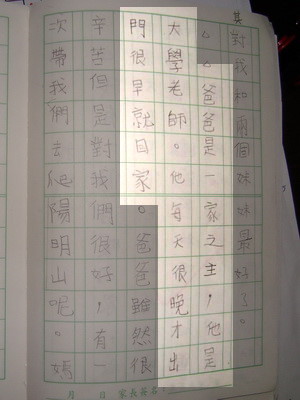 其對我和兩個妹妹最好了。
。。爸爸是一家之主，他是
大學老師。他每天很晚才出
門很早就回家。爸爸雖然很
辛苦但是對我們很好，有一
次帶我們去爬陽明山呢。媽
月 日 家長簽名：